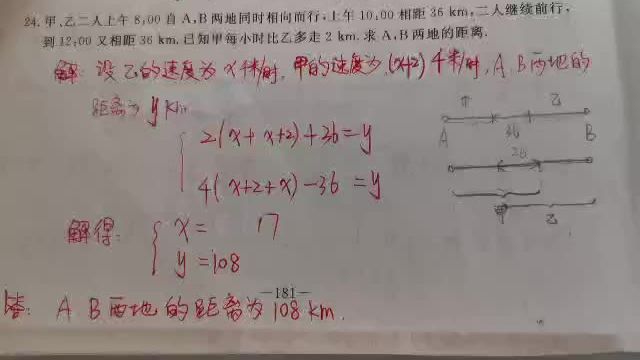 24. 甲、乙二人上午 8:00 自 A,B 两地同时相向而行,上午 10:00 相距 36 km,二人继续前行,
到 12:00 又相距 36 km,已知甲每小时比乙多走 2 km.求 A,B 两地的距离.
解: 设乙的速度为 x 千米/时, 甲的速度为 (x+2) 千米/时, A, B 两地的
距离为 y Km
甲 乙
A 36 B
2(x+x+2)+36=y
36
4(x+2+x)-36=y
甲 乙
解得: x= 17
y=108
—181—
答: A B 两地的距离为 108 km.